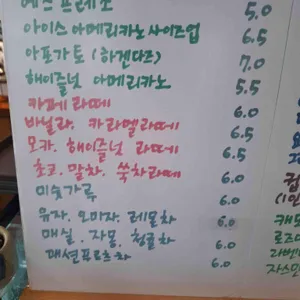 에스프레소 5.0
아이스 아메리카노 사이즈업 6.5
아포가토 (하겐다즈) 7.0
헤이즐넛 아메리카노 5.5
카페 라떼 6.0
바닐라. 카라멜라떼 6.5
모카. 헤이즐넛 라떼 6.5
초코. 말차. 쑥차라떼 6.0
미숫가루 6.0
유자. 오미자. 레몬차 6.0
매실. 자몽. 청귤차 6.0
패션프르츠차 6.0